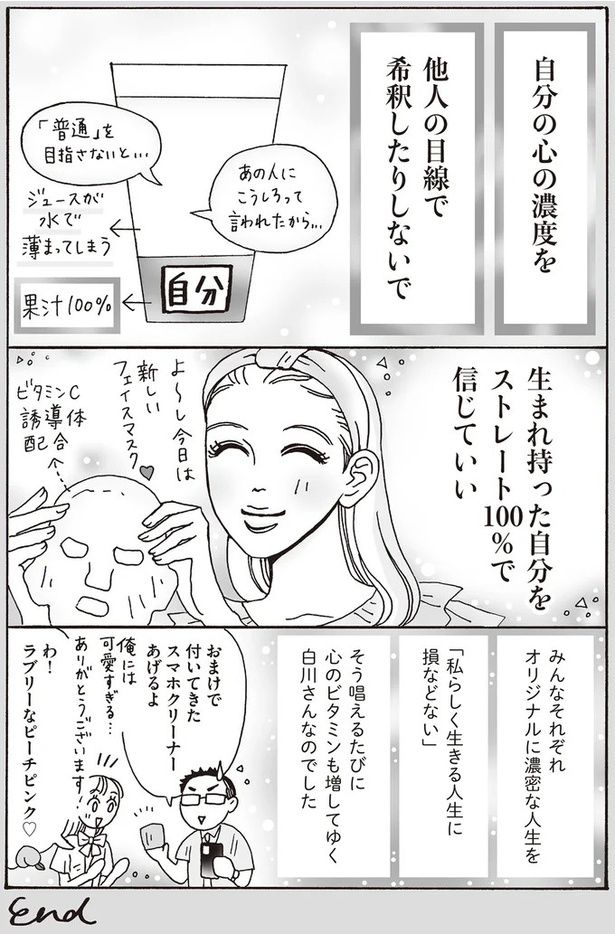 自分の心の濃度を
他人の目線で
希釈したりしないで
あの人に
こうしろって
言われたから…
「普通」を
目指さないと…
ジュースが
水で
薄まってしまう
自分
果汁100%
生まれ持った自分を
ストレート100%で
信じていい
よ〜し今日は
新しい
フェイスマスク♥
ビタミンC
誘導体
配合
みんなそれぞれ
オリジナルに濃密な人生を
「私らしく生きる人生に
損などない」
そう唱えるたびに
心のビタミンも増してゆく
白川さんなのでした
おまけで
付いてきた
スマホクリーナー
あげるよ
俺には
可愛すぎる…
ありがとうございます!
わ!
ラブリーなピーチピンク♡
End